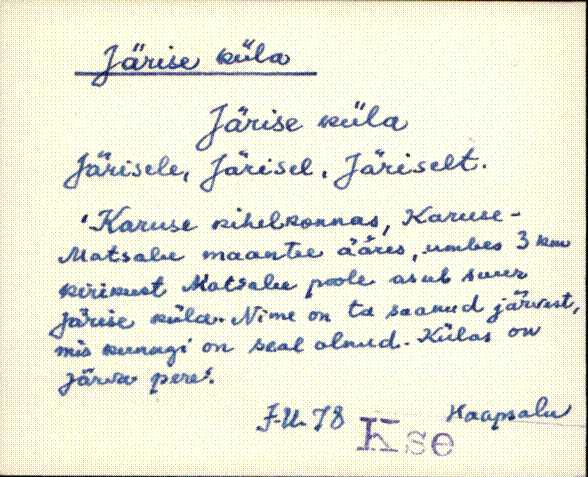 Järise küla
Järise küla
Järisele, Järisel, Järiselt.
"Karuse kihelkonnas, Karuse-
Matsalu maantee ääres, umbes 3 km
kirikust Matsalu poole asub suur
Järise küla. Nime on ta saanud järvest,
mis kunagi on seal olnud. Külas on
Järva pere".
J-U. 78 Haapsalu
Kse